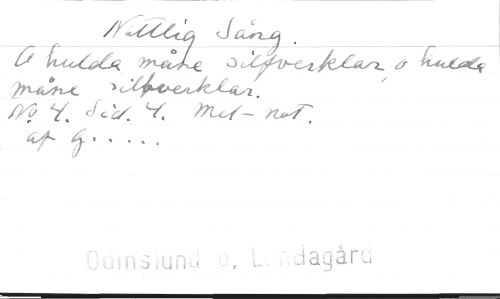 Nattlig Sång.
O hulda måne silfverklar, o hulda
måne silfverklar.
No 4. Sid. 4. Mel-not.
af G.....
Odinslund o, Lundagård